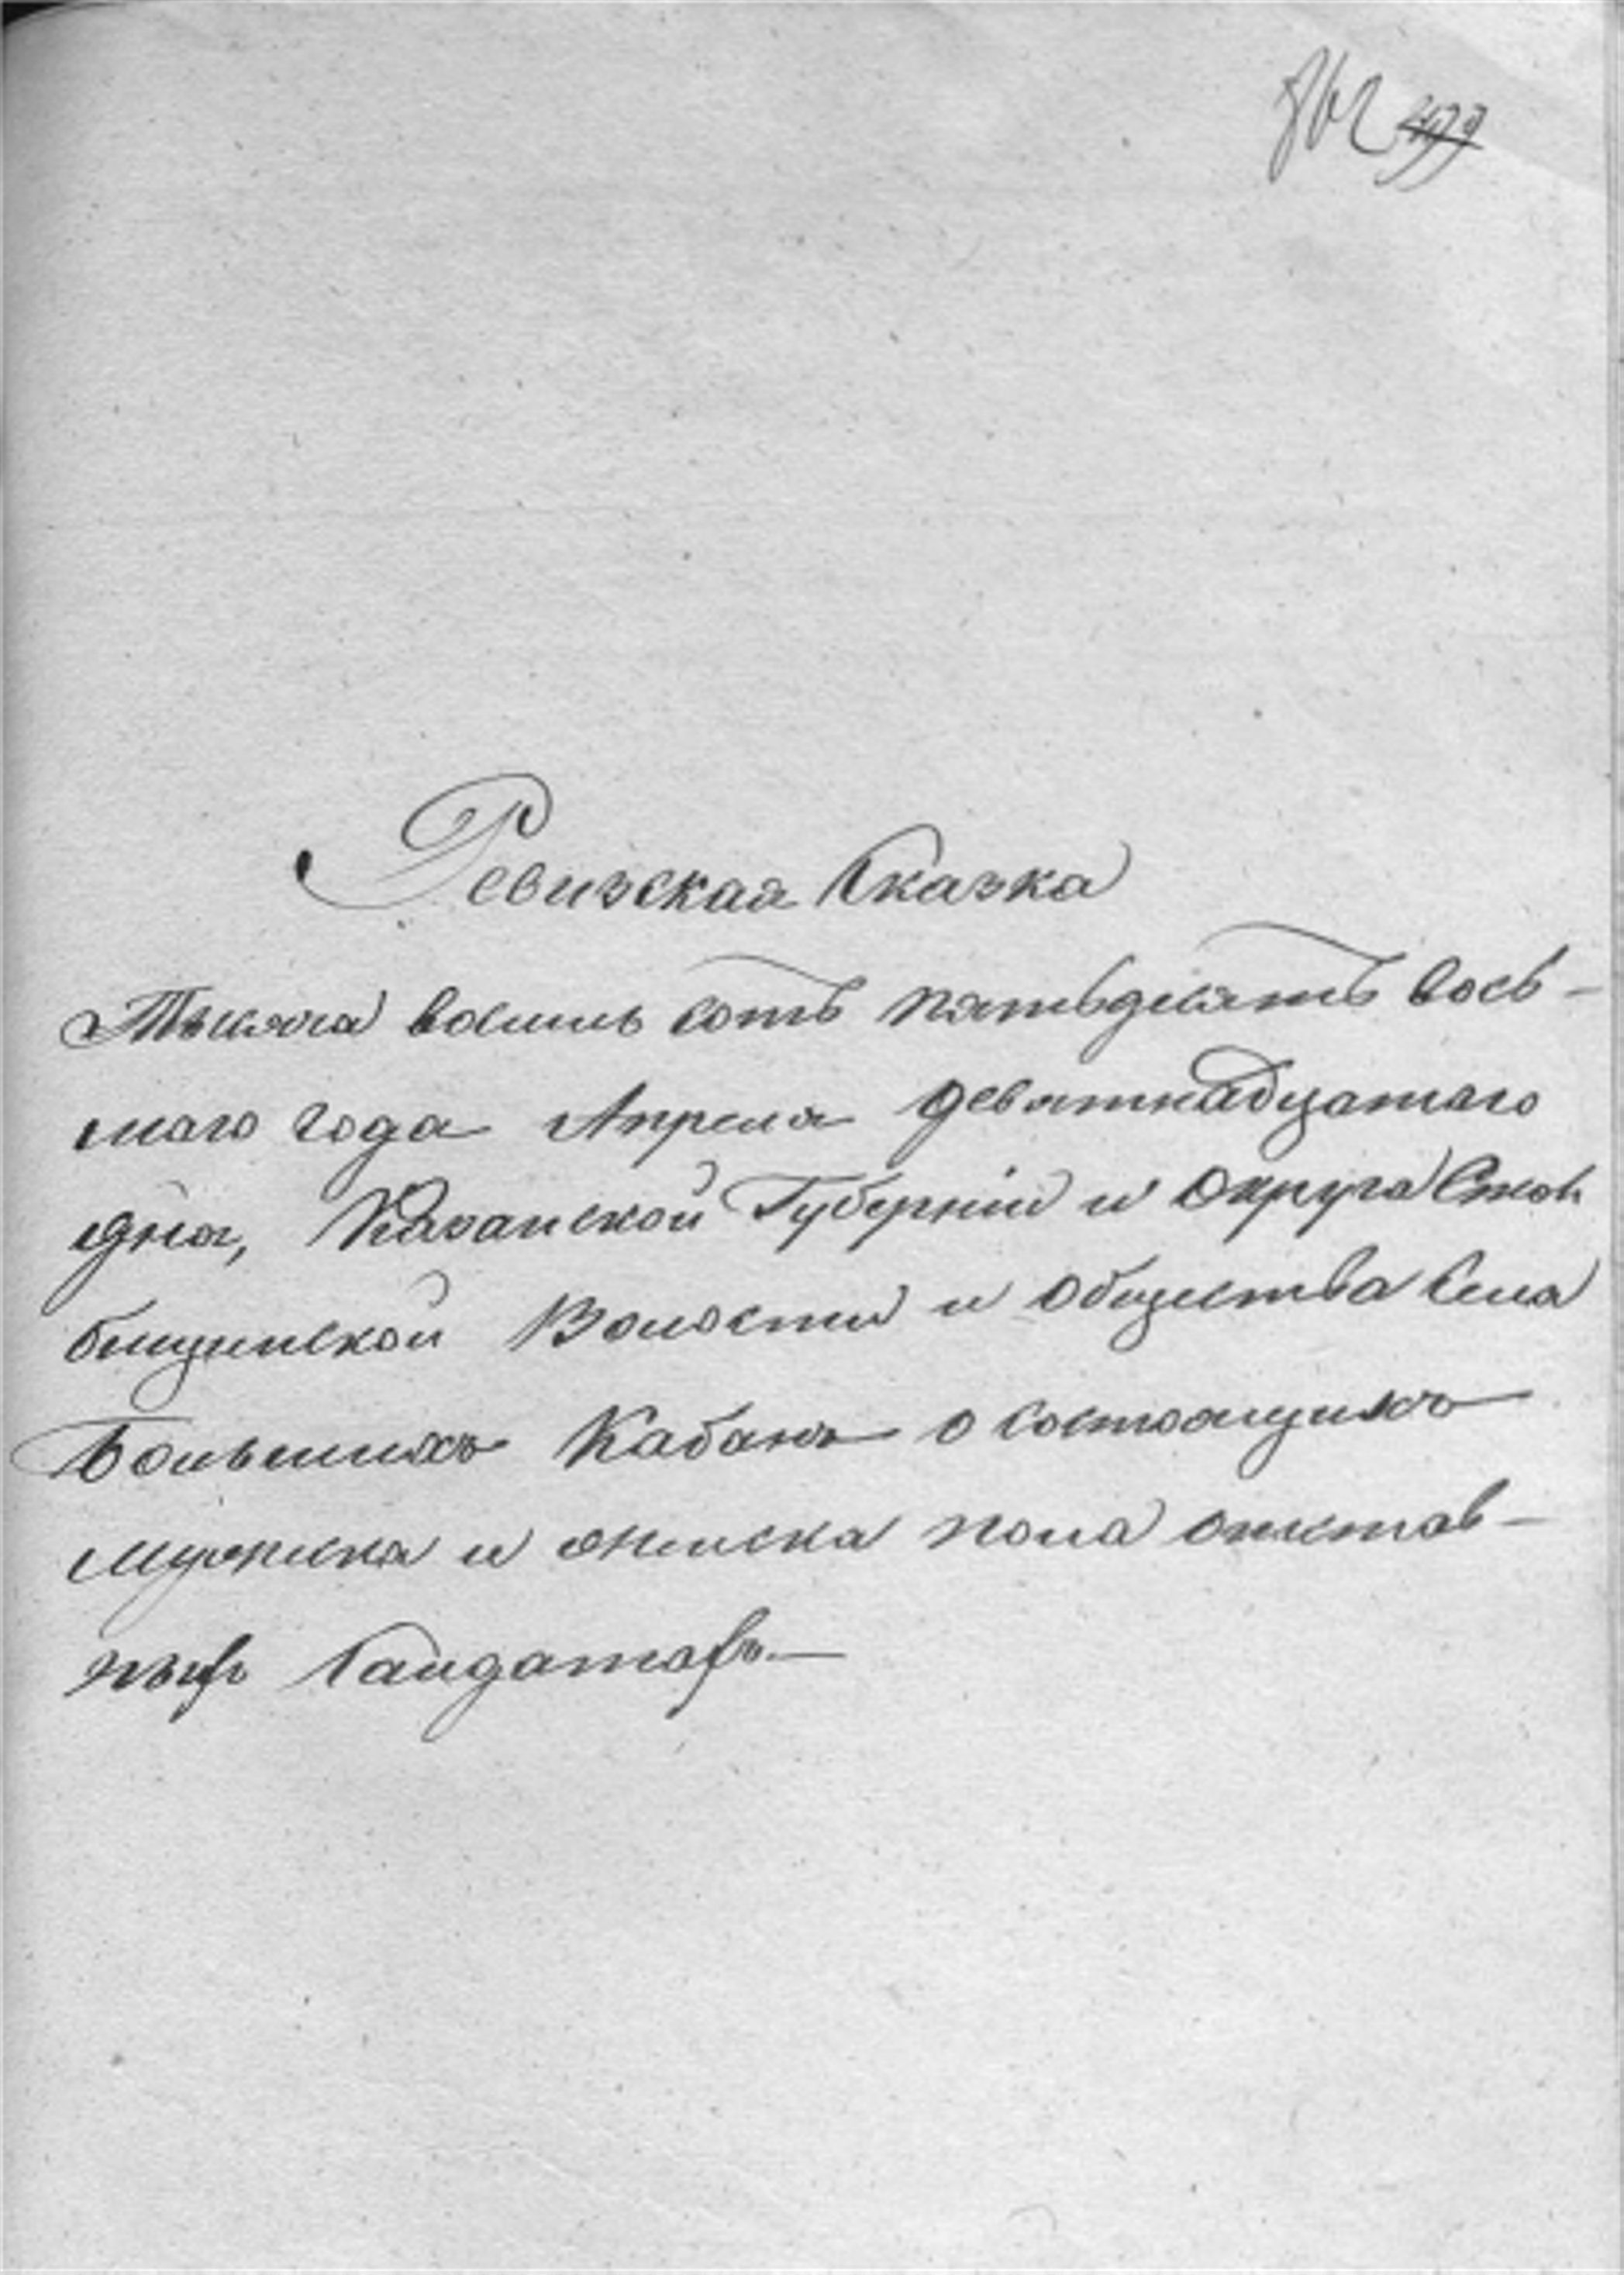 Ревизская Сказка
Тысяча восемь сотъ пятьдесятъ вось-
маго года Апреля девятнадцатаго
дня, Казанской Губерніи и Округа Стол
бищинской Волости и общества Села
Большихъ Кабанъ о состоящихъ
мужеска и женска пола отстав-
ныхъ Салдатахъ.—